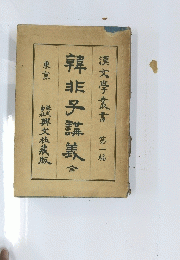 漢文學叢書 第一編
韓非子講義 全
東京 興文社藏版